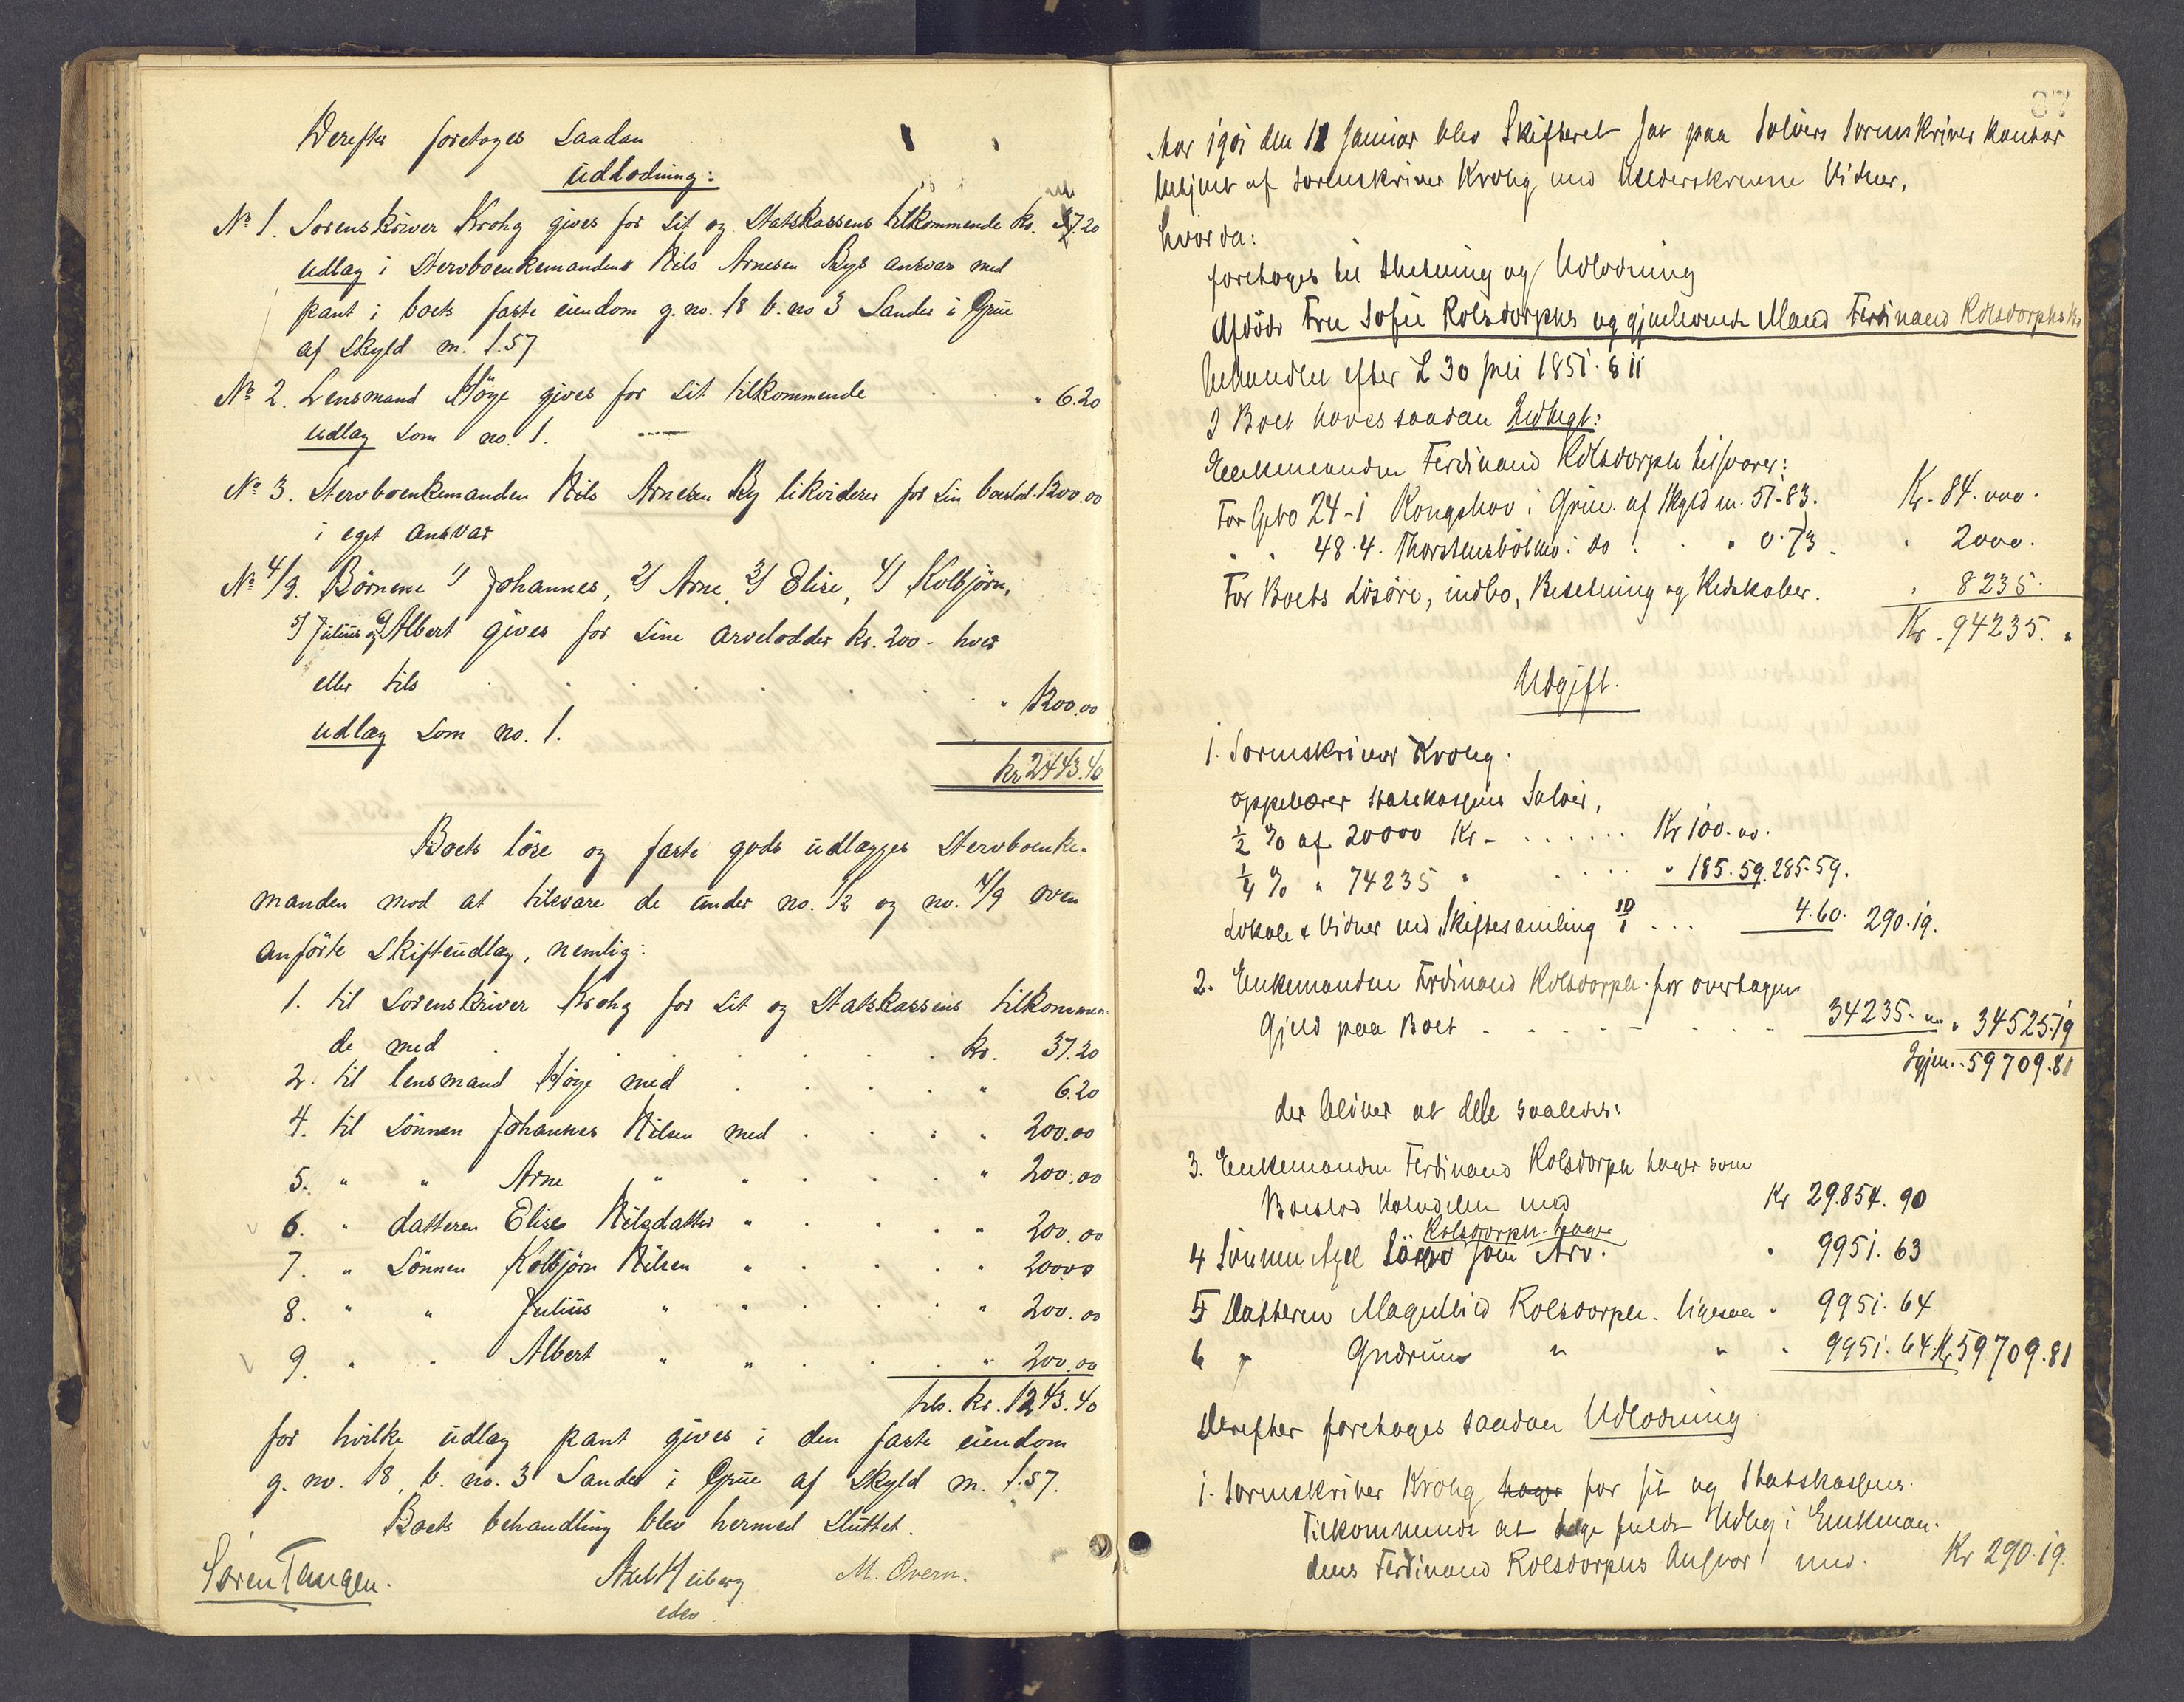 Derefter foretoges saadan
udlodning:
No 1. Sorenskriver Krohg gives for sit og Statskassens tilkommende kr. 37.20
udlæg i Stervboenkemandens Nils Arnesen Bys ansvar med
pant i boets faste eiendom g. no. 18 b. no 3 Sander i Grue
af skyld m. 1.57
No 2. Lensmand Høye gives for sit tilkommende " 6.20
udlæg som no. 1.
No 3. Stervboenkemanden Nils Arnesen By likviderer for sin boeslod 1200.00
i eget ansvar
No 4/9. Börnene 1) Johannes, 2) Arne, 3) Elise, 4) Kolbjörn,
5) Julius og 6) Albert gives for sine arvelodder kr. 200 - hver
eller tils . . . . . . " 1200.00
udlæg som no. 1.
kr 2443.40
Boets löse og faste gods udlægges Stervboenke-
manden mod at tilsvare de under no. 1/2 og no. 4/9 oven
anförte skifteudlæg, nemlig:
1. til Sorenskriver Krohg for sit og Statskassens tilkommen-
de med . . . . . . kr. 37.20
2. til lensmand Høye med . . . . " 6.20
4. til sönnen Johannes Nilsen med . . . " 200.00
5. " " Arne " " . . . " 200.00
6. " datteren Elise Nilsdatter " . . . " 200.00
7. " Sönnen Kolbjörn Nilsen " . . . " 200.00
8. " " Julius " " . . . " 200.00
9. " " Albert " " . . . " 200.00
tils. kr. 1243.40
for hvilke udlæg pant gives i den faste eiendom
g. no. 18, b. no. 3 Sander i Grue af skyld m. 1.57.
Boets behandling blev hermed sluttet.
Sören Tangen. Axel Heiberg M. Overn.
edsv.
87
Aar 1901 den 11 Januar blev Skifteret sat paa Solöers Sorenskriver kontor
betjent af Sorenskriver Krohg med Underskrevne Vidner,
hvorda:
foretoges til Slutning og Udlodning
Afdöde Fru Sofie Rolsdorphs og gjenlevende Mand Ferdinand Rolsdorphs
behandlet efter L 30 Juli 1851. § 11
I Boet haves saadan Indtægt:
Enkemanden Ferdinand Rolsdorph tilsvarer:
For Gbno 24-1 Kongshov i Grue af skyld m. 51-83. Kr. 84.000.
" " 48.4. Thorstensbölmo i do . . " 0.73. " 2000.
For Boets Lösöre, indbo, Besetning og Redskaber. " 8235.
Kr. 94235. "
Udgift.
1. Sorenskriver Krohg.
oppebærer Statskassens Salær,
1/2 % af 20000 Kr - . . . . . . Kr 100.00.
1/4 % " 74235 " . . . . " 185.59. 285.59.
Lokale & Vidner ved Skiftesamling 10/1 . . . 4.60. 290.19.
2. Enkemanden Ferdinand Rolsdorph for overtagen
Gjeld paa Boet - - - - - 34235. " " 34525.19
Igjen. 59709.81
der bliver at dele saaledes:
3. Enkemanden Ferdinand Rolsdorph tager som
Boeslod Halvdelen med Kr 29.854. 90
Rolsdorph tager
4 Sönnen Axel som Arv. " 9951. 63
5 Datteren Rolsdorph. ligesaa " 9951. 64
6 " Gudrun " " " 9951. 64. Kr 59709.81
Derefter foretoges saadan Udlodning.
1. Sorenskriver Krohg tager for sit og Statskassens
Tilkommende at tage fuldt Udlæg i Enkeman-
dens Ferdinand Rolsdorphs Ansvar med. Kr 290.19.